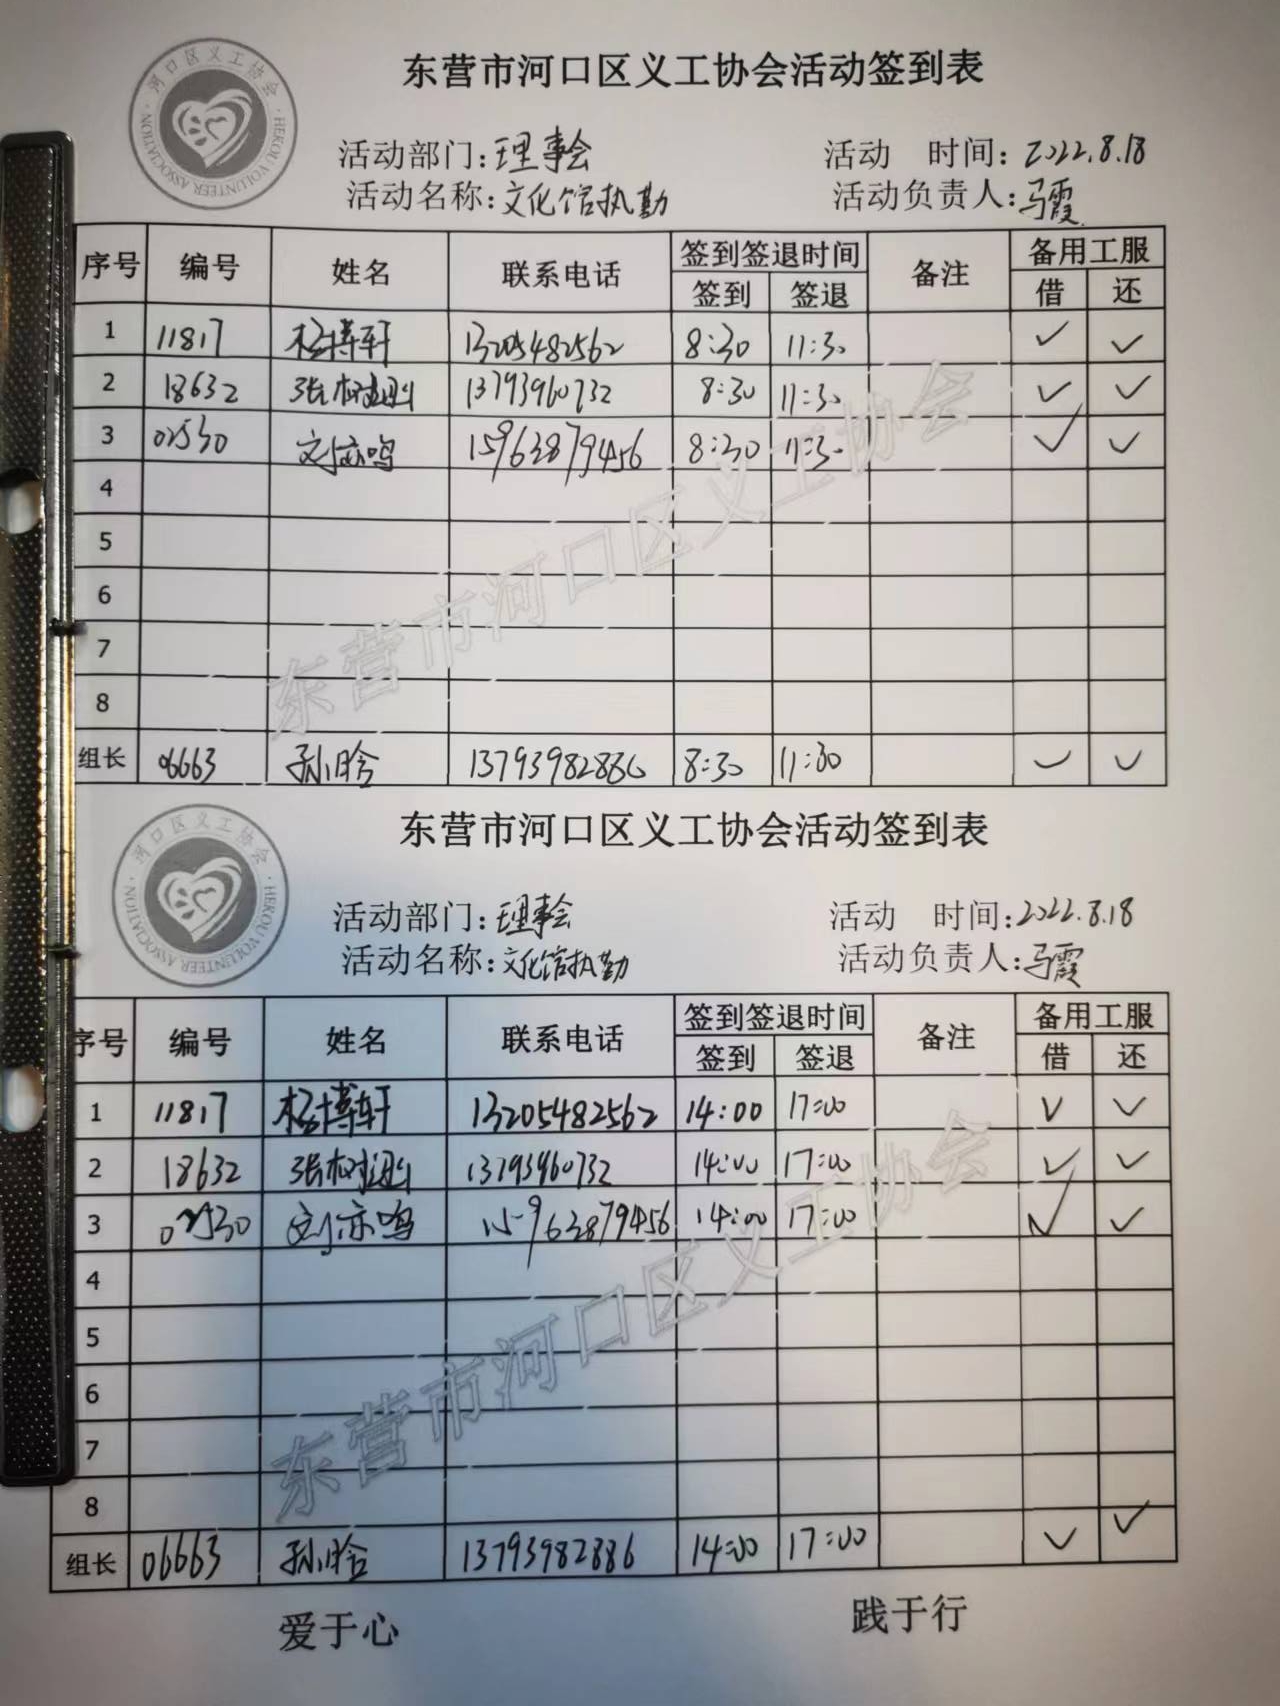 东营市河口区义工协会活动签到表
河口区义工协会
HEKOU VOLUNTEER ASSOCIATION
活动部门：理事会 活动 时间：2022.8.18
活动名称：文化馆执勤 活动负责人：马霞
序号 编号 姓名 联系电话 签到签退时间 备注 备用工服
签到 签退 借 还
1 11817 杨博轩 13205482562 8:30 11:30 ✓ ✓
2 18632 张树 13793960732 8:30 11:30 ✓ ✓
3 02530 刘亦鸣 15963879456 8:30 11:30 ✓ ✓
4
5
6
7
8
组长 06663 孙晗 13793982886 8:30 11:30 ✓ ✓
东营市河口区义工协会
东营市河口区义工协会活动签到表
河口区义工协会
HEKOU VOLUNTEER ASSOCIATION
活动部门：理事会 活动 时间：2022.8.18
活动名称：文化馆执勤 活动负责人：马霞
序号 编号 姓名 联系电话 签到签退时间 备注 备用工服
签到 签退 借 还
1 11817 杨博轩 13205482562 14:00 17:00 ✓ ✓
2 18632 张树 13793960732 14:00 17:00 ✓ ✓
3 02530 刘亦鸣 15963879456 14:00 17:00 ✓ ✓
4
5
6
7
8
组长 06663 孙晗 13793982886 14:00 17:00 ✓ ✓
东营市河口区义工协会
爱于心 践于行